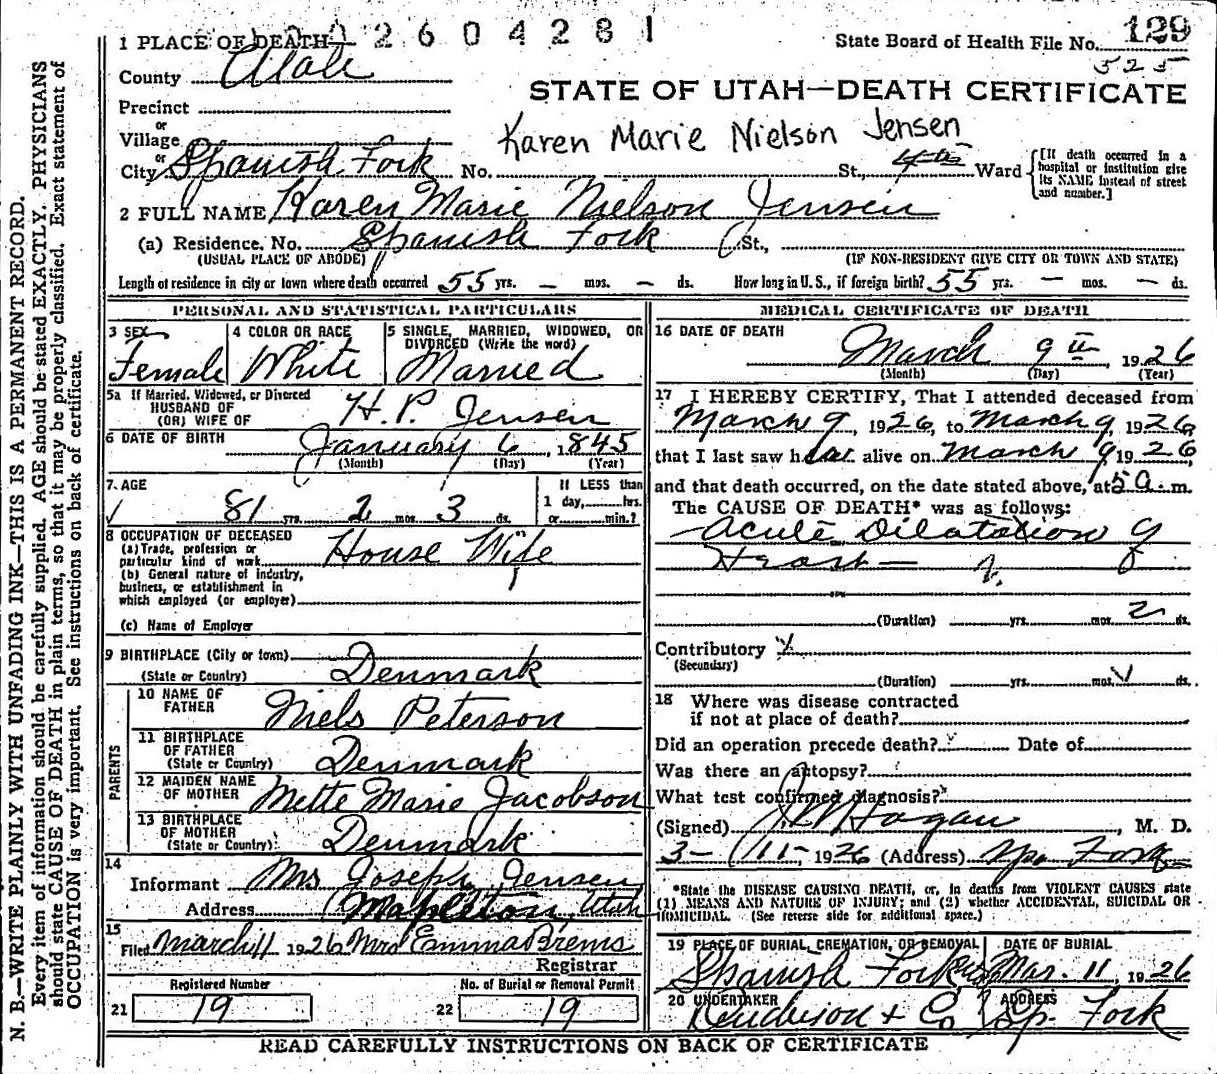 2 6 0 4 2 8 1
1 PLACE OF DEATH
State Board of Health File No. 129
325
County Utah
STATE OF UTAH—DEATH CERTIFICATE
Precinct
or
Village
Karen Marie Nielson Jensen
or
City Spanish Fork No. St., 4th Ward
[If death occurred in a hospital or institution give its NAME instead of street and number.]
2 FULL NAME Karen Marie Nielson Jensen
(a) Residence, No. Spanish Fork St.,
(USUAL PLACE OF ABODE) (IF NON-RESIDENT GIVE CITY OR TOWN AND STATE)
Length of residence in city or town where death occurred 55 yrs. — mos. — ds. How long in U. S., if foreign birth? 55 yrs. — mos. — ds.
PERSONAL AND STATISTICAL PARTICULARS
3 SEX
Female
4 COLOR OR RACE
White
5 SINGLE, MARRIED, WIDOWED, OR
DIVORCED (Write the word)
Married
5a If Married, Widowed, or Divorced
HUSBAND OF
(OR) WIFE OF H. P. Jensen
6 DATE OF BIRTH January 6, 1845
(Month) (Day) (Year)
7. AGE
81 yrs. 2 mos. 3 ds.
If LESS than
1 day,......hrs.
or......min.?
8 OCCUPATION OF DECEASED
(a) Trade, profession or
particular kind of work House Wife
(b) General nature of industry,
business, or establishment in
which employed (or employer)
(c) Name of Employer
9 BIRTHPLACE (City or town)
(State or Country) Denmark
PARENTS
10 NAME OF
FATHER Niels Peterson
11 BIRTHPLACE
OF FATHER
(State or Country) Denmark
12 MAIDEN NAME
OF MOTHER Mette Marie Jacobson
13 BIRTHPLACE
OF MOTHER
(State or Country) Denmark
14
Informant Mrs Joseph Jensen
Address Mapleton, Utah
15
Filed March 11 1926 Mrs Emma Brems
Registrar
Registered Number
21 19
No. of Burial or Removal Permit
22 19
MEDICAL CERTIFICATE OF DEATH
16 DATE OF DEATH
March 9th, 1926
(Month) (Day) (Year)
17 I HEREBY CERTIFY, That I attended deceased from
March 9, 1926, to March 9, 1926
that I last saw her alive on March 9, 1926,
and that death occurred, on the date stated above, at 5 a. m.
The CAUSE OF DEATH* was as follows:
Acute Dilatation of
Heart —
(Duration) yrs. mos. 2 ds.
Contributory
(Secondary)
(Duration) yrs. mos. ds.
18 Where was disease contracted
if not at place of death?
Did an operation precede death? Date of
Was there an autopsy?
What test confirmed diagnosis?
(Signed) Hagan, M. D.
3-11-1926 (Address) Sp. Fork
*State the DISEASE CAUSING DEATH, or, in deaths from VIOLENT CAUSES state
(1) MEANS AND NATURE OF INJURY; and (2) whether ACCIDENTAL, SUICIDAL OR
HOMICIDAL. (See reverse side for additional space.)
19 PLACE OF BURIAL, CREMATION, OR REMOVAL
Spanish Fork
DATE OF BURIAL
Mar. 11, 1926
20 UNDERTAKER
& Co
ADDRESS
Sp. Fork
READ CAREFULLY INSTRUCTIONS ON BACK OF CERTIFICATE
N. B.—WRITE PLAINLY WITH UNFADING INK—THIS IS A PERMANENT RECORD.
Every item of information should be carefully supplied. AGE should be stated EXACTLY. PHYSICIANS
should state CAUSE OF DEATH in plain terms, so that it may be properly classified. Exact statement of
OCCUPATION is very important. See instructions on back of certificate.